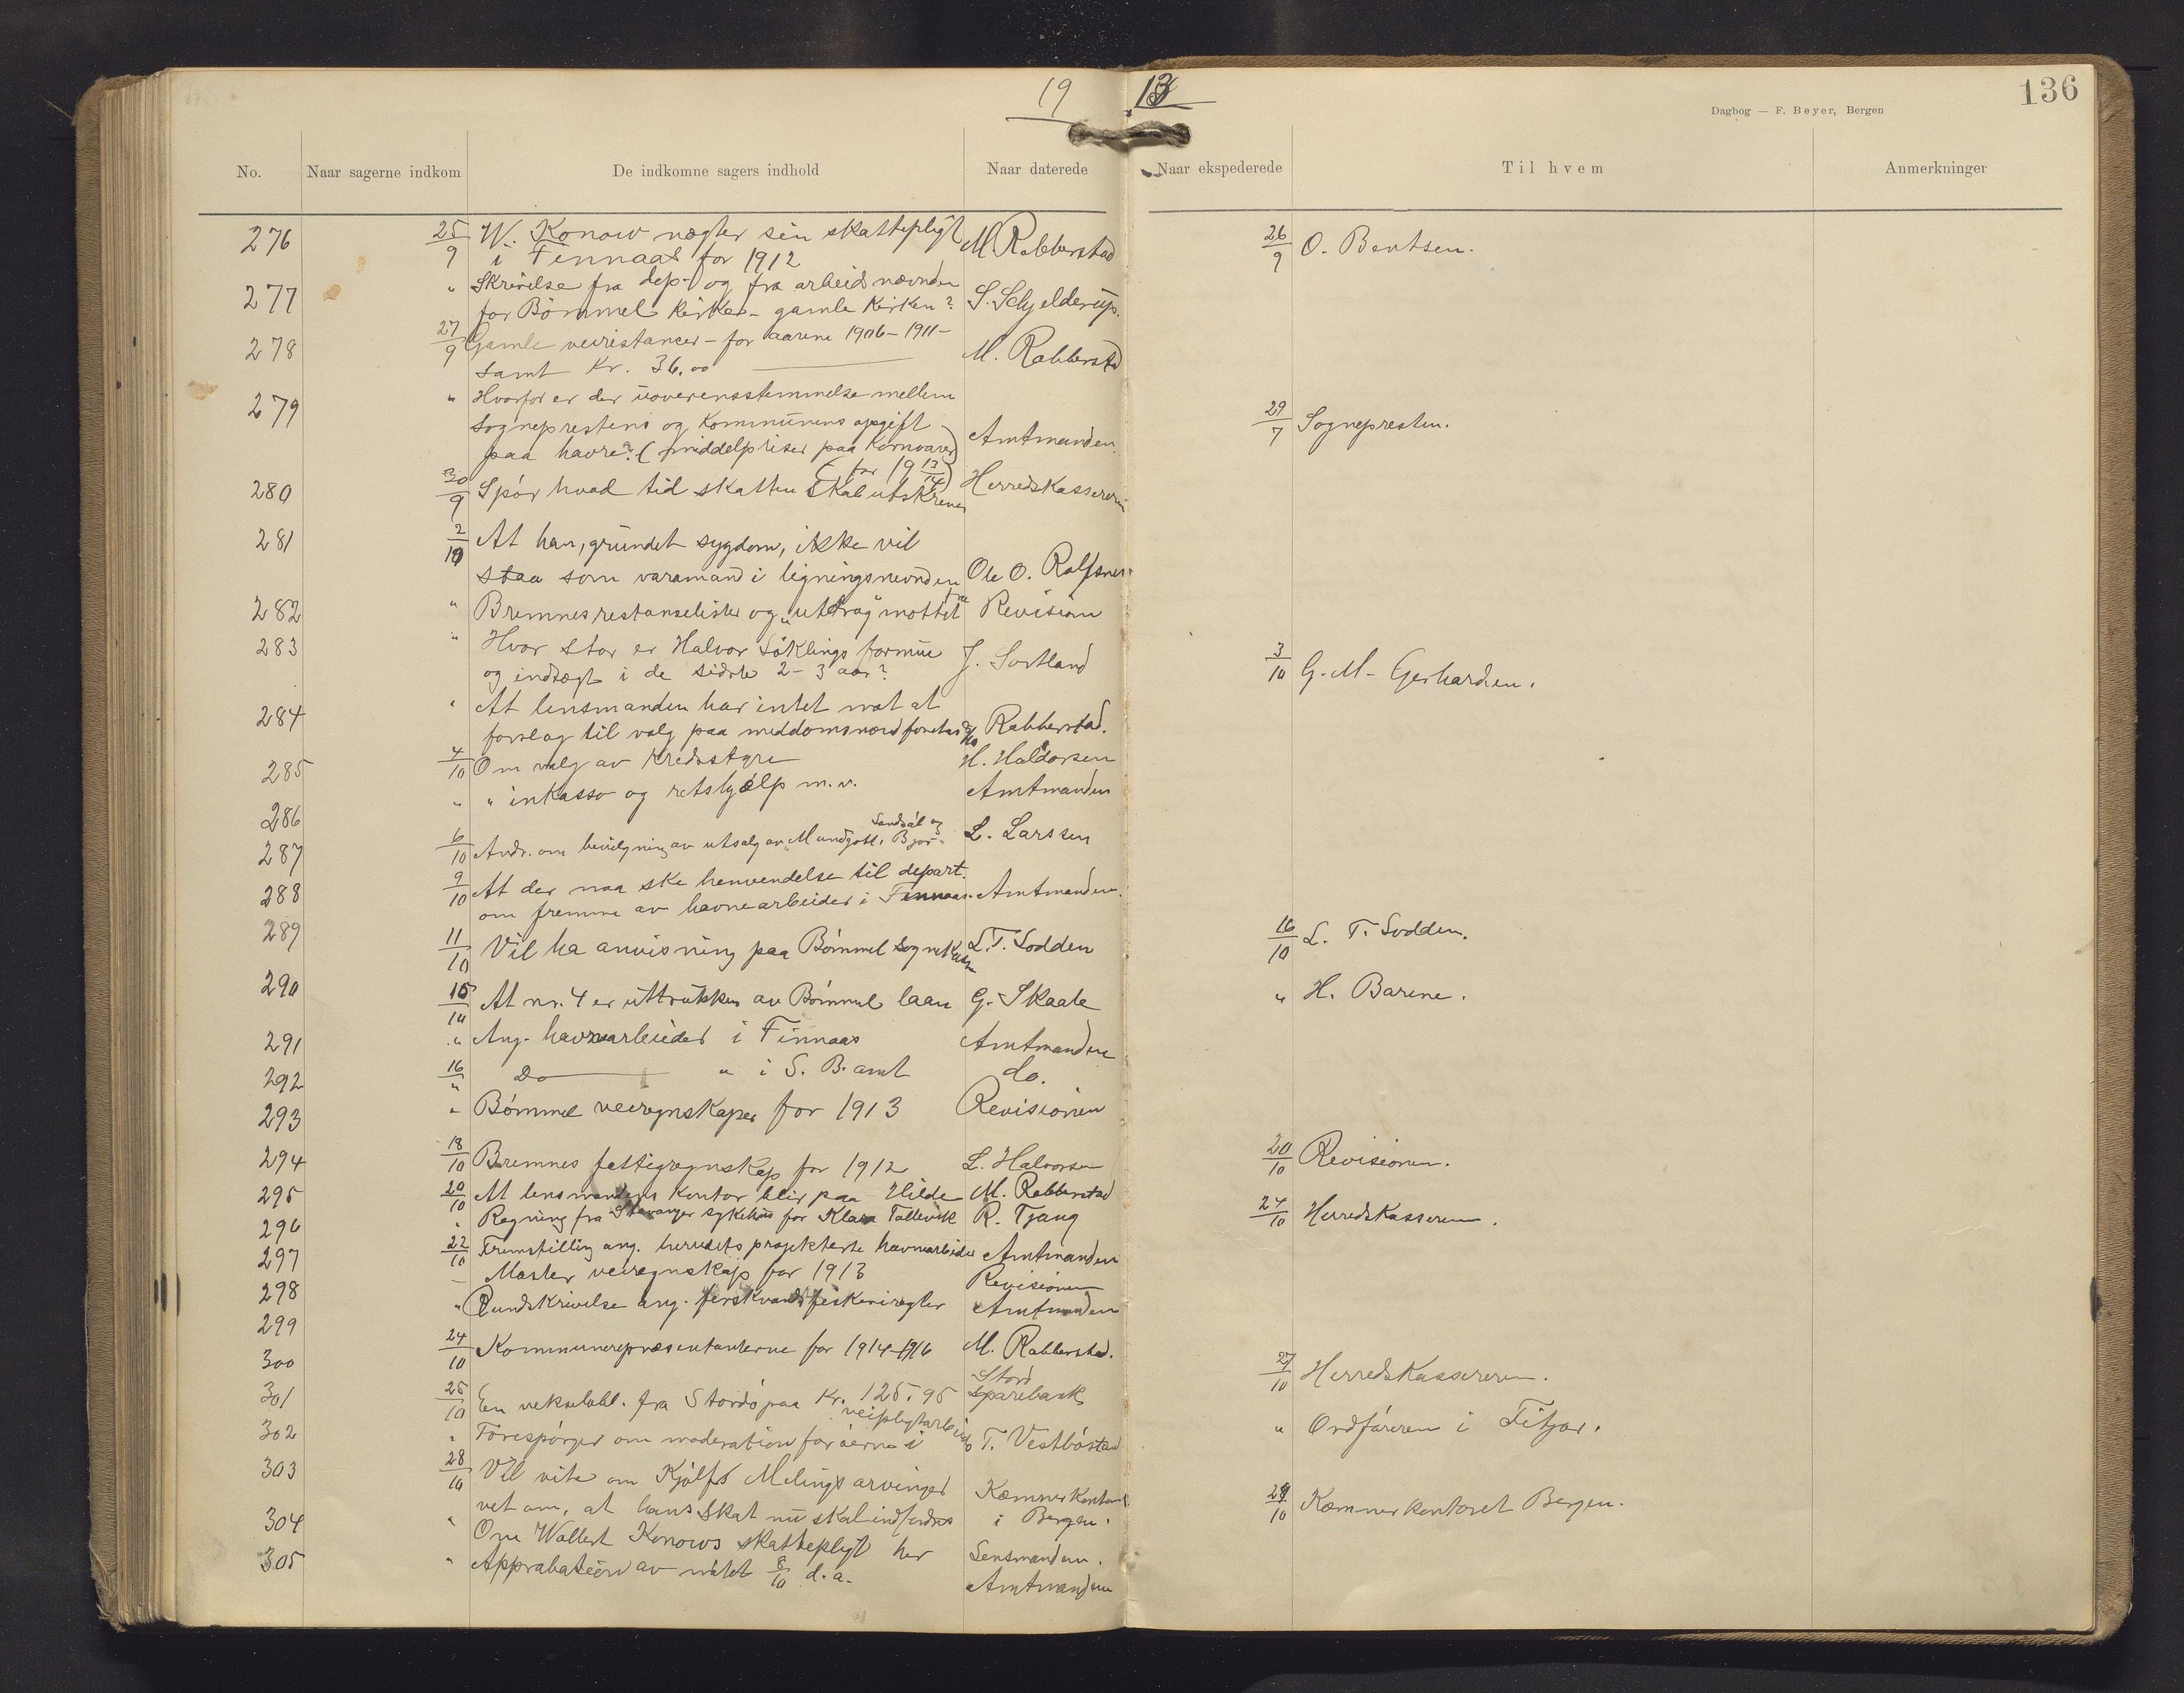 19 13
136
Dagbog — F. Beyer, Bergen
No. Naar sagerne indkom De indkomne sagers indhold Naar daterede Naar ekspederede Til hvem Anmerkninger
276 25/9 W. Konow nægter sin skattepligt M. Rabberstad 26/9 O. Bentsen.
i Finnaas for 1912
277 " Skrivelse fra dep. og fra arbeidsnævnden
for Bömmel kirke - gamle kirken? S. Schjelderup.
278 27/9 Gamle veirestanser - for aarene 1906-1911-
samt Kr. 36.00 M. Rabberstad
279 " Hvorfor er der uoverensstemmelse mellem
sogneprestens og kommunens opgift 29/7 Sognepresten.
paa havre? (middelpriser paa kornvarer) Amtmanden.
( for 1913/14)
280 30/9 Spör hvad tid skatten skal utskrives Herredskassereren
281 2/10 At han, grundet sygdom, ikke vil
staa som varamand i ligningsnevnden Ole O. Rolfsnes.
282 " Bremnes restanselister og "uttrag" mottat fra Revision
283 " Hvor stor er Halvor Söklings formue J. Sortland 3/10 G. M. Gerhardsen.
og indtægt i de sidste 2-3 aar?
284 " At lensmanden har intet mot at
forslag til valg paa meddomsmænd foretas Rabberstad.
285 4/10 Om valg av kredsstyre H. Haldorsen
286 " " inkasso og retshjælp m.v. Amtmanden
Sandvål og
287 6/10 Andr. om bevilgning av utsalg av "Mundgott" Bjor" L. Larssen
288 9/10 At der maa ske henvendelse til depart.
om fremme av havnearbeider i Finnaas. Amtmanden.
289 11/10 Vil ha anvisning paa Bömmel sognekasse L. T. Sodden 16/10 L. T. Sodden.
290 15/10 At nr. 4 er uttrukken av Bömmel laan G. Skaale " H. Barene.
291 " Ang. havnearbeider i Finnaas Amtmanden
292 16/" Do " i S. B. amt do.
293 " Bömmel veiregnskaper for 1913 Revisionen
294 18/10 Bremnes fattigregnskap for 1912 L. Halvorsen 20/10 Revisionen.
295 20/10 At lensmandens kontor blir paa Hilde M. Rabberstad
296 " Regning fra Stavanger sykehus for Klara Tallevik R. Tjang 24/10 Herredskasseren.
297 22/10 Fremstilling ang. herredets projekterte havnearbeider Amtmanden
298 — Moster veiregnskap for 1913 Revisionen
299 " Rundskrivelse ang. ferskvandsfiskeriregler Amtmanden
300 24/10 Kommunerepræsentanterne for 1914-1916 M. Rabberstad.
301 25/10 En vekselobl. fra Stordö paa Kr. 125.95 Stord Sparebank 27/10 Herredskassereren.
302 " Forespörger om moderation for öerne i veipligtarbeide T. Vestböstad " Ordföreren i Fitjar.
303 28/10 Vil vite om Kjölfs Melings arvinger Kæmnerkontoret 29/10 Kæmnerkontoret Bergen.
vet om, at hans skat nu skal indfordres i Bergen.
304 " Om Wollert Konows skattepligt her Lensmanden.
305 " Approbation av mötet 8/10 d.a. Amtmanden